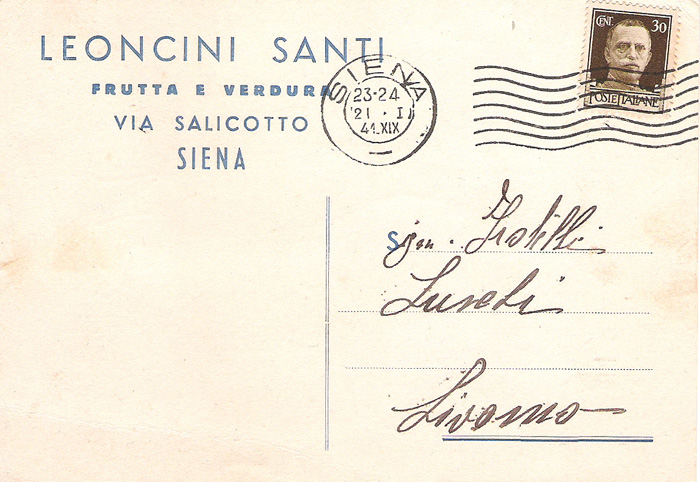 LEONCINI SANTI
FRUTTA E VERDURA
VIA SALICOTTO
SIENA
SIENA
23-24
21 · I
41.XIX
CENT. 30
POSTE ITALIANE
Sign. Fratelli
Livorno